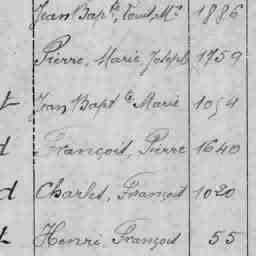 Jean Bapte, Louis Me 1886
Pierre, Marie, Joseph 1759
t Jean Bapte Marie 1054
d François, Pierre 1640
d Charles, François 1020
t Henri, François 55